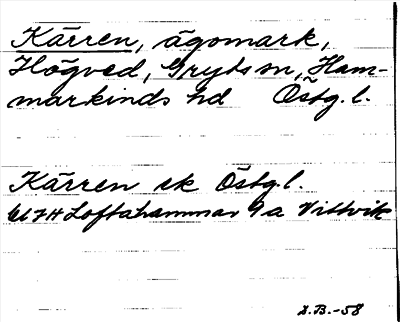 Kärren, ägomark,
Högved, Gryts sn, Ham-
markinds hd Östg.l.
Kärren ek Östg.l.
Loftahammar 9a Vittvik
Z.B.-58